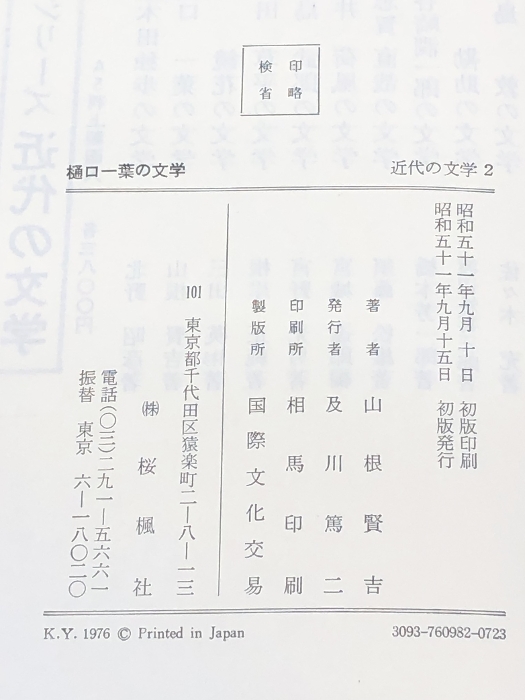 検印
省略
樋口一葉の文学
近代の文学 2
昭和五十一年九月 十 日 初版印刷
昭和五十一年九月十五日 初版発行
著者 山根賢吉
発行者 及川篤二
印刷所 相馬印刷
製版所 国際文化交易
101 東京都千代田区猿楽町二―八―一三
㈱ 桜楓社
電話(〇三)二九一―五六六一
振替 東京 六―一八〇二〇
K.Y. 1976 © Printed in Japan
3093-760982-0723